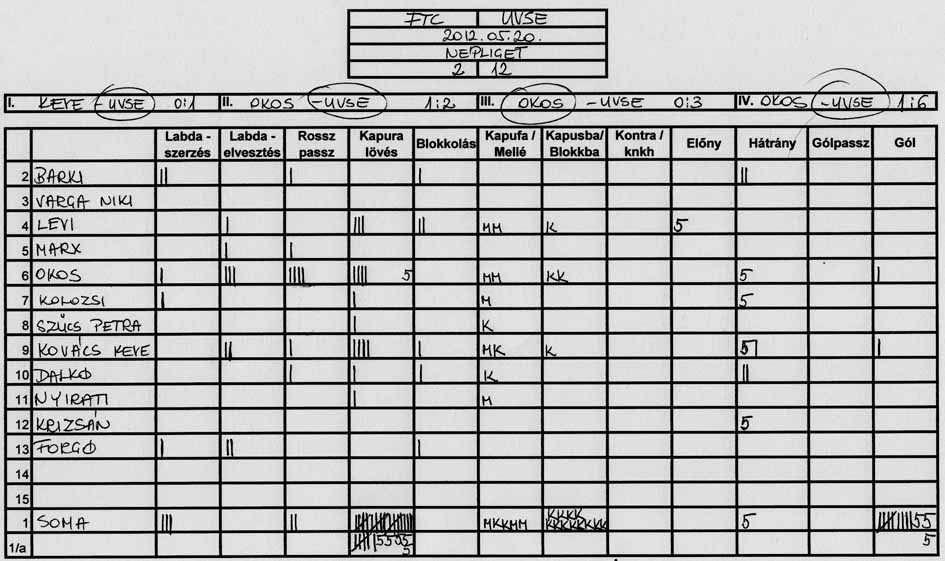 FTC UVSE
2012.05.20.
NÉPLIGET
2 12
I. KEVE - UVSE 0:1 II. OKOS - UVSE 1:2 III. OKOS - UVSE 0:3 IV. OKOS - UVSE 1:6
Labda - szerzés Labda - elvesztés Rossz passz Kapura lövés Blokkolás Kapufa / Mellé Kapusba/ Blokkba Kontra / knkh Előny Hátrány Gólpassz Gól
2 BARKI || | | ||
3 VARGA NIKI
4 LÉVI | ||| || MM K 5
5 MARX | |
6 OKOS | ||| |||| |||| 5 MM KK 5 |
7 KOLOZSI | | M 5
8 SZŰCS PETRA | K
9 KOVÁCS KEVE || | |||| | MK K 5| |
10 DALKÓ | | | K ||
11 NYIRATI | M
12 KRIZSÁN 5
13 FORGÓ | || |
14
15
1 SOMA ||| || MKKMM KKKK KKKKKKKK 5 55
1/a 5555 5 5